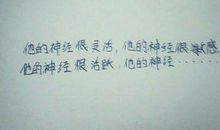 他的神经很灵活，他的神经很敏感
他的神经很活跃，他的神经……